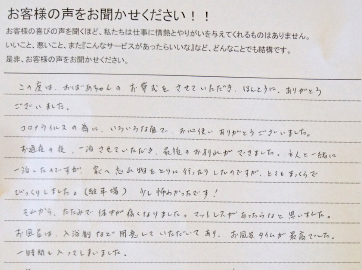 お客様の声をお聞かせください!!
お客様の喜びの声を聞くほど、私たちは仕事に情熱とやりがいを与えてくれるものはありません。
いいこと、悪いこと、また『こんなサービスがあったらいいな』など、どんなことでも結構です。
是非、お客様の声をお聞かせください。
この度は、おばあちゃんの お葬式を させていただき、ほんとうに、ありがとう
ございました。
コロナウイルスの為に、いろいろな面で、お心使い ありがとうございました。
お通夜の夜、一泊させていただき、最後のお別れができました。主人と一緒に
泊ったのですが、家へ忘れ物をとりに行ったりしたのですが、とても まっくらで
びっくりしました。(駐車場) 少し怖わかったです!
それから、たたみで 体が痛くなりました。マットレスがあったらなと思いました。
お風呂は、入浴剤など用意して いただいてあり、お風呂タイムが最高でした。
一時間も入ってしまいました。